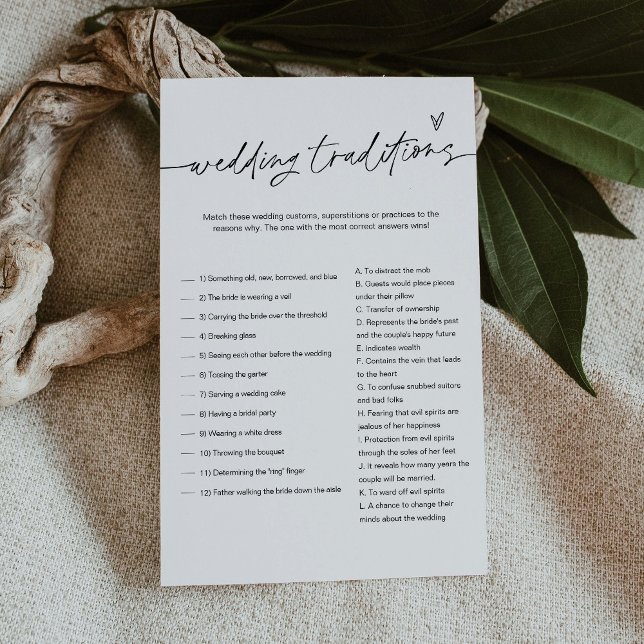 wedding traditions
Match these wedding customs, superstitions or practices to the
reasons why. The one with the most correct answers wins!
1) Something old, new, borrowed, and blue
2) The bride is wearing a veil
3) Carrying the bride over the threshold
4) Breaking glass
5) Seeing each other before the wedding
6) Tossing the garter
7) Serving a wedding cake
8) Having a bridal party
9) Wearing a white dress
10) Throwing the bouquet
11) Determining the "ring" finger
12) Father walking the bride down the aisle
A. To distract the mob
B. Guests would place pieces
under their pillow
C. Transfer of ownership
D. Represents the bride's past
and the couple's happy future
E. Indicates wealth
F. Contains the vein that leads
to the heart
G. To confuse snubbed suitors
and bad folks
H. Fearing that evil spirits are
jealous of her happiness
I. Protection from evil spirits
through the soles of her feet
J. It reveals how many years the
couple will be married,
K. To ward off evil spirits
L. A chance to change their
minds about the wedding